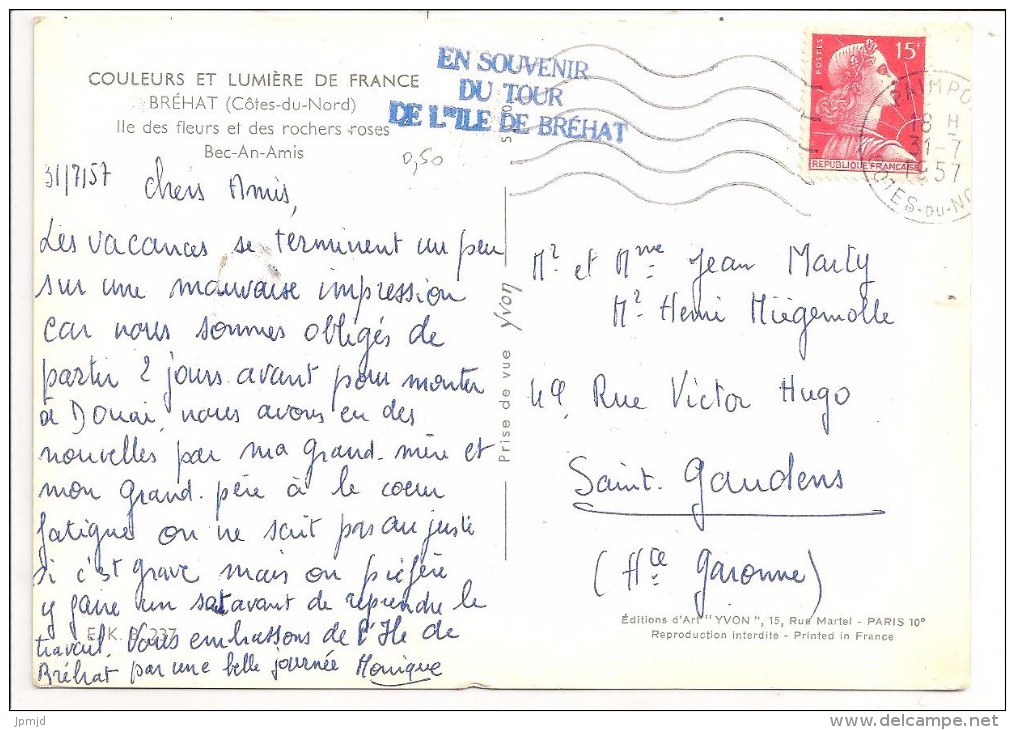 COULEURS ET LUMIÈRE DE FRANCE
BRÉHAT (Côtes-du-Nord)
Ile des fleurs et des rochers roses
Bec-An-Amis
EN SOUVENIR
DU TOUR
DE L'ILE DE BRÉHAT
0,50
POSTES
15F
REPUBLIQUE FRANÇAISE
PAIMPO
18 H
31-7
1957
CÔTES-DU-NO
31/7/57
Chers Amis,
Les vacances se terminent un peu
sur une mauvaise impression
car nous sommes obligés de
partir 2 jours avant pour monter
à Douai, nous avons eu des
nouvelles par ma grand-mère et
mon grand-père à le coeur
fatigué on ne sait pas au juste
si c'est grave mais on préfère
y faire un saut avant de reprendre le
travail. Vous embrassons de l'Ile de
Bréhat par une belle journée Monique
E. K. B. 237
Prise de vue Yvon
Mr et Mme Jean Marty
Mr Henri Miègemolle
49, Rue Victor Hugo
Saint-Gaudens
(Hte Garonne)
Éditions d'Art "YVON", 15, Rue Martel - PARIS 10e
Reproduction Interdite - Printed in France
jpmjd
delcampe.net